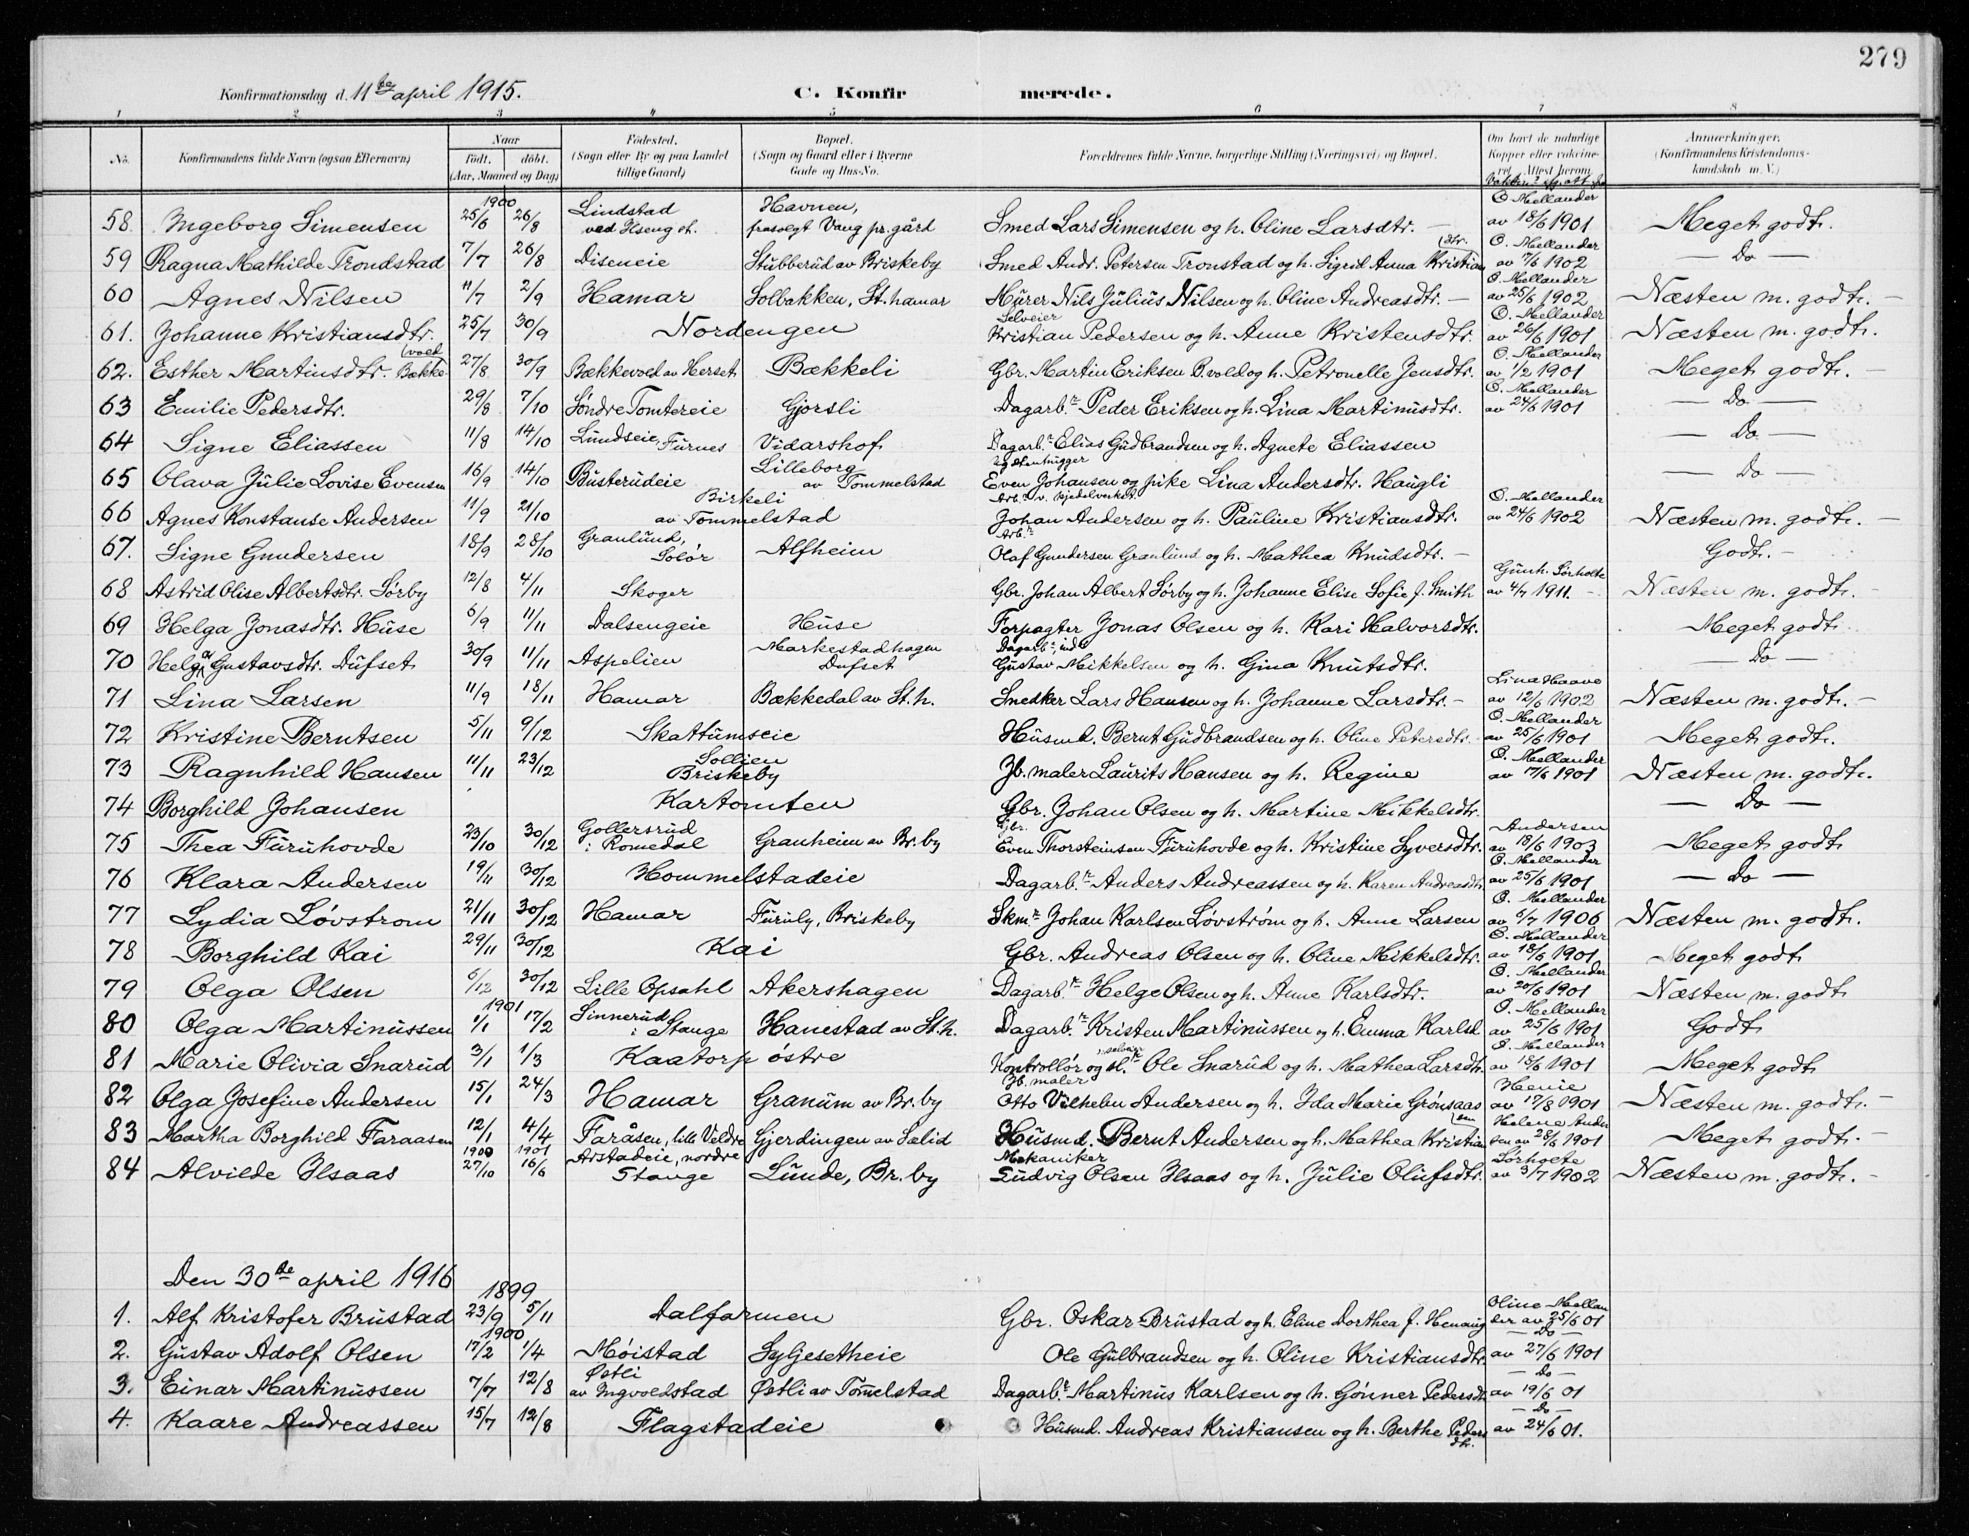 279
Konfirmationsdag d. 11te april 1915. C. Konfirmerede.
1 2 3 4 5 6 7 8
No. Konfirmandens fulde Navn (ogsaa Efternavn) Naar Födt. döbt. (Aar, Maaned og Dag) Födested. (Sogn eller By og paa Landet tillige Gaard) Bopæl. (Sogn og Gaard eller i Byerne Gade og Hus-No. Forældrenes fulde Navne, borgerlige Stilling (Næringsvei) og Bopæl. Om havt de naturlige Kopper eller vakcineret. Attest herom Anmærkninger. (Konfirmandens Kristendomskundskab m. V.)
58 Ingeborg Simensen 1900 25/6 26/8 Lindstad ved Ilseng st. Havnen, frasolgt Vang pr.gård Smed Lars Simensen og h. Oline Larsdtr. O. Mellander av 18/6 1901 Meget godt.
59 Ragna Mathilde Trondstad 7/7 26/8 Diseneie Stubberud av Briskeby Smed Andr. Petersen Tronstad og h. Sigrid Anna Kristiandtr. O. Mellander av 7/6 1902 — Do —
60 Agnes Nilsen 11/7 2/9 Hamar Solbakken, St. hamar Murer Nils Julius Nilsen og h. Oline Andreasdtr. O. Mellander av 25/6 1902 Næsten m. godt.
61. Johanne Kristiansdtr. 25/7 30/9 Nordengen Selveier Kristian Pedersen og h. Anne Kristensdtr. O. Mellander av 26/6 1901 Næsten m. godt.
62. Esther Martinsdtr. Bækkevold 27/8 30/9 Bækkevold av Herset Bækkeli Gbr. Martin Eriksen B.vold og h. Petronelle Jensdtr. O. Mellander av 1/2 1901 Meget godt.
63 Emilie Pedersdtr. 29/8 7/10 Søndre Tomtereie Gjørsli Dagarb.r Peder Eriksen og h. Lina Martinusdtr. O. Mellander av 24/6 1901 — Do —
64 Signe Eliassen 11/8 14/10 Lundseie, Furnes Vidarshof Dagarb.r Elias Gudbrandsen og h. Agnete Eliassen — Do —
65 Olava Julie Lovise Evensen 16/9 14/10 Busterudeie Lilleborg av Tommelstad Even Johansen og pike Lina Andersdtr. Haugli — Do —
66 Agnes Konstanse Andersen 11/9 21/10 Birkeli av Tommelstad Johan Andersen og h. Pauline Kristiansdtr. O. Mellander av 24/6 1902 Næsten m. godt.
67. Signe Gundersen 18/9 28/10 Granlund, Solør Alfheim Arb.r Olaf Gundersen Granlund og h. Mathea Knudsdtr. Godt.
68 Astrid Olise Albertsdtr. Sørby 12/8 4/11 Skoger Gbr. Johan Albert Sørby og h. Johanne Elise Sofie f. Smith Gunh. Sørholte av 4/7 1911. Næsten m. godt.
69 Helga Jonasdtr. Huse 6/9 11/11 Dalsengeie Huse Forpagter Jonas Olsen og h. Kari Halvorsdtr. Meget godt.
70 Helga Gustavsdtr. Dufset 30/9 11/11 Aspelien Markestadhagen Dufset Gustav Mikkelsen og h. Gina Knutsdtr. — Do —
71 Lina Larsen 11/9 18/11 Hamar Bækkedal av St. h. Snekker Lars Hansen og h. Johanne Larsdtr. Lina Haave av 12/6 1902 Næsten m. godt.
72 Kristine Berntsen 5/11 9/12 Skattumseie Husmd. Bernt Gudbrandsen og h. Oline Petersdtr. O. Mellander av 25/6 1901 Meget godt.
73 Ragnhild Hansen 11/11 23/12 Sollien Briskeby Jb. maler Laurits Hansen og h. Regine O. Mellander av 7/6 1901 Næsten m. godt.
74 Borghild Johansen Kartomten Gbr. Johan Olsen og h. Martine Mikkelsdtr. — Do —
75 Thea Furuhovde 23/10 30/12 Gollersrud i Romedal Granheim av Br.by Gbr. Even Thorsteinsen Furuhovde og h. Kristine Syversdtr. Andersen av 18/6 1903 Meget godt
76 Klara Andersen 19/11 30/12 Hommelstadeie Dagarb.r Anders Andreassen og h. Karen Andreasdt. O. Mellander av 25/6 1901 — Do —
77 Lydia Løvstrom 21/11 30/12 Hamar Furuly, Briskeby Skm.r Johan Karlsen Løvstrøm og h. Anne Larsen O. Mellander av 6/7 1906 Næsten m. godt.
78 Borghild Kai 29/11 30/12 Kai Gbr. Andreas Olsen og h. Oline Mikkelsdtr. O. Mellander av 18/6 1901 Meget godt
79 Olga Olsen 6/12 30/12 Lille Opsahl Akershagen Dagarb.r Helge Olsen og h. Anne Karlsdtr. O. Mellander av 20/6 1901 Næsten m. godt
80 Olga Martinussen 1901 1/1 17/2 Sinnerud i Stange Hanestad av St. h. Dagarb.r Kristen Martinussen og h. Emma Karlsd. O. Mellander av 25/6 1901 Godt
81 Marie Olivia Snarud 3/1 1/3 Kaatorp østre Kontrollør og selveier Ole Snarud og h. Mathea Larsdt. O. Mellander av 18/6 1901 Meget godt
82 Olga Josefine Andersen 15/1 24/3 Hamar Granum av Br.by Jb. maler Otto Vilhelm Andersen og h. Ida Marie Grønsaas Henie av 17/8 1901 Næsten m. godt.
83 Martha Borghild Faraasen 12/1 4/4 Faråsen, lille Veldre Gjerdingen av Sælid Husmd. Bernt Andersen og h. Mathea Kristiansen Helene Andersen av 28/6 1901 Meget godt.
84 Alvilde Ilsaas 1900 27/10 1901 16/6 Arstadeie, nordre Stange Lunde, Br. by Mekaniker Ludvig Olsen Ilsaas og h. Julie Olufsdtr. Sørholte av 3/7 1902 Næsten m. godt.
Den 30de april 1916
1. Alf Kristofer Brustad 1899 23/9 5/11 Dalfarmen Gbr. Oskar Brustad og h. Eline Dorthea f. Henaug Oline Mellander av 25/6 01
2. Gustav Adolf Olsen 1900 17/2 1/4 Møistad Syljesetheie Ole Gulbrandsen og h. Oline Kristiansdtr. — Do — av 27/6 1901
3. Einar Martinussen 7/7 12/8 Østli av Ingvoldstad Østli av Tom̄elstad Dagarb.r Martinus Karlsen og h. Gønner Pedersdt. — Do — av 19/6 01
4. Kaare Andreassen 15/7 12/8 Flagstadeie Husmd. Andreas Kristiansen og h. Berthe Pedersdtr. — Do — av 24/6 01.